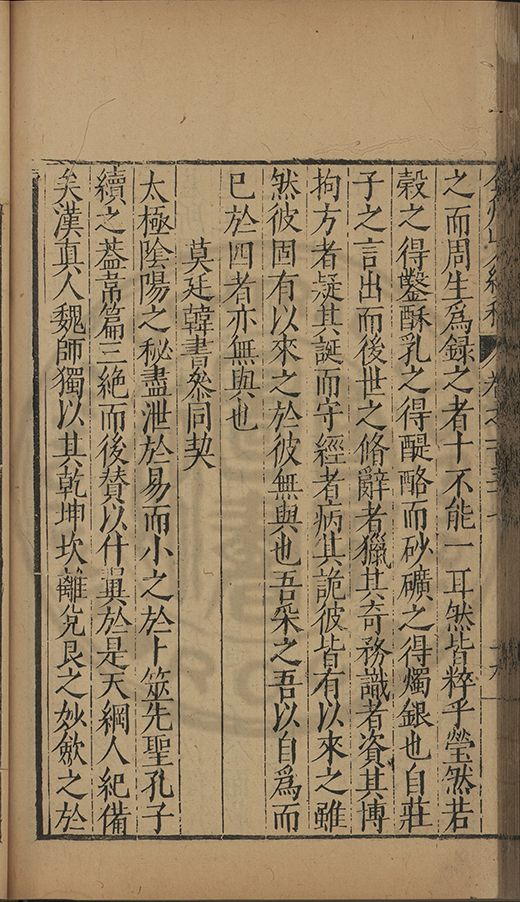 之而周生爲録之者十不能一耳然皆粹乎瑩然若
穀之得鑿酥乳之得醍酪而砂礦之得燭銀也自莊
子之言出而後世之脩辭者獵其奇務識者資其博
拘方者疑其誕而守經者病其詭彼皆有以來之雖
然彼固有以來之於彼無與也吾采之吾以自爲而
已於四者亦無與也
莫廷韓書叅同契
太極陰陽之秘盡泄於易而小之於卜筮先聖孔子
續之葢韋篇三絶而後賛以什翼於是天綱人紀備
矣漢真人魏師獨以其乾坤坎離兌艮之妙斂之於